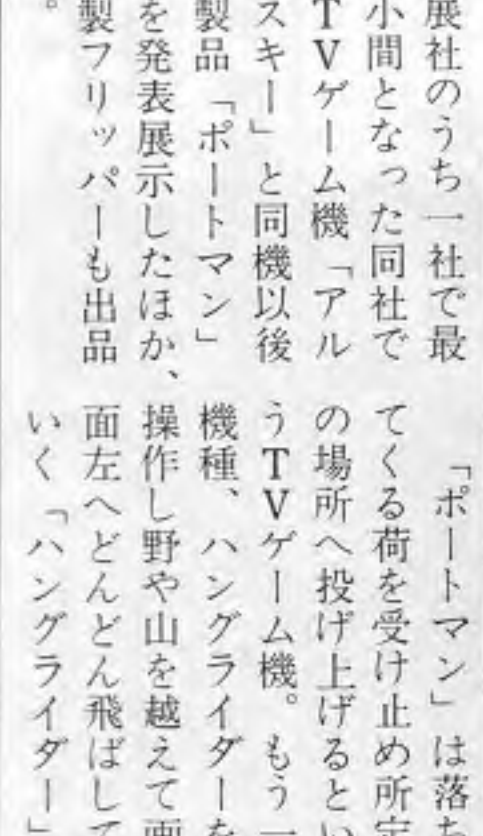 展社のうち一社で最
小間となった同社で
TVゲーム機「アル
スキー」と同機以後
製品「ポートマン」
を発表展示したほか、
製フリッパーも出品
。
「ポートマン」は落ち
てくる荷を受け止め所定
の場所へ投げ上げるとい
うTVゲーム機。もう一
機種、ハングライダーを
操作し野や山を越えて画
面左へどんどん飛ばして
いく「ハングライダー」